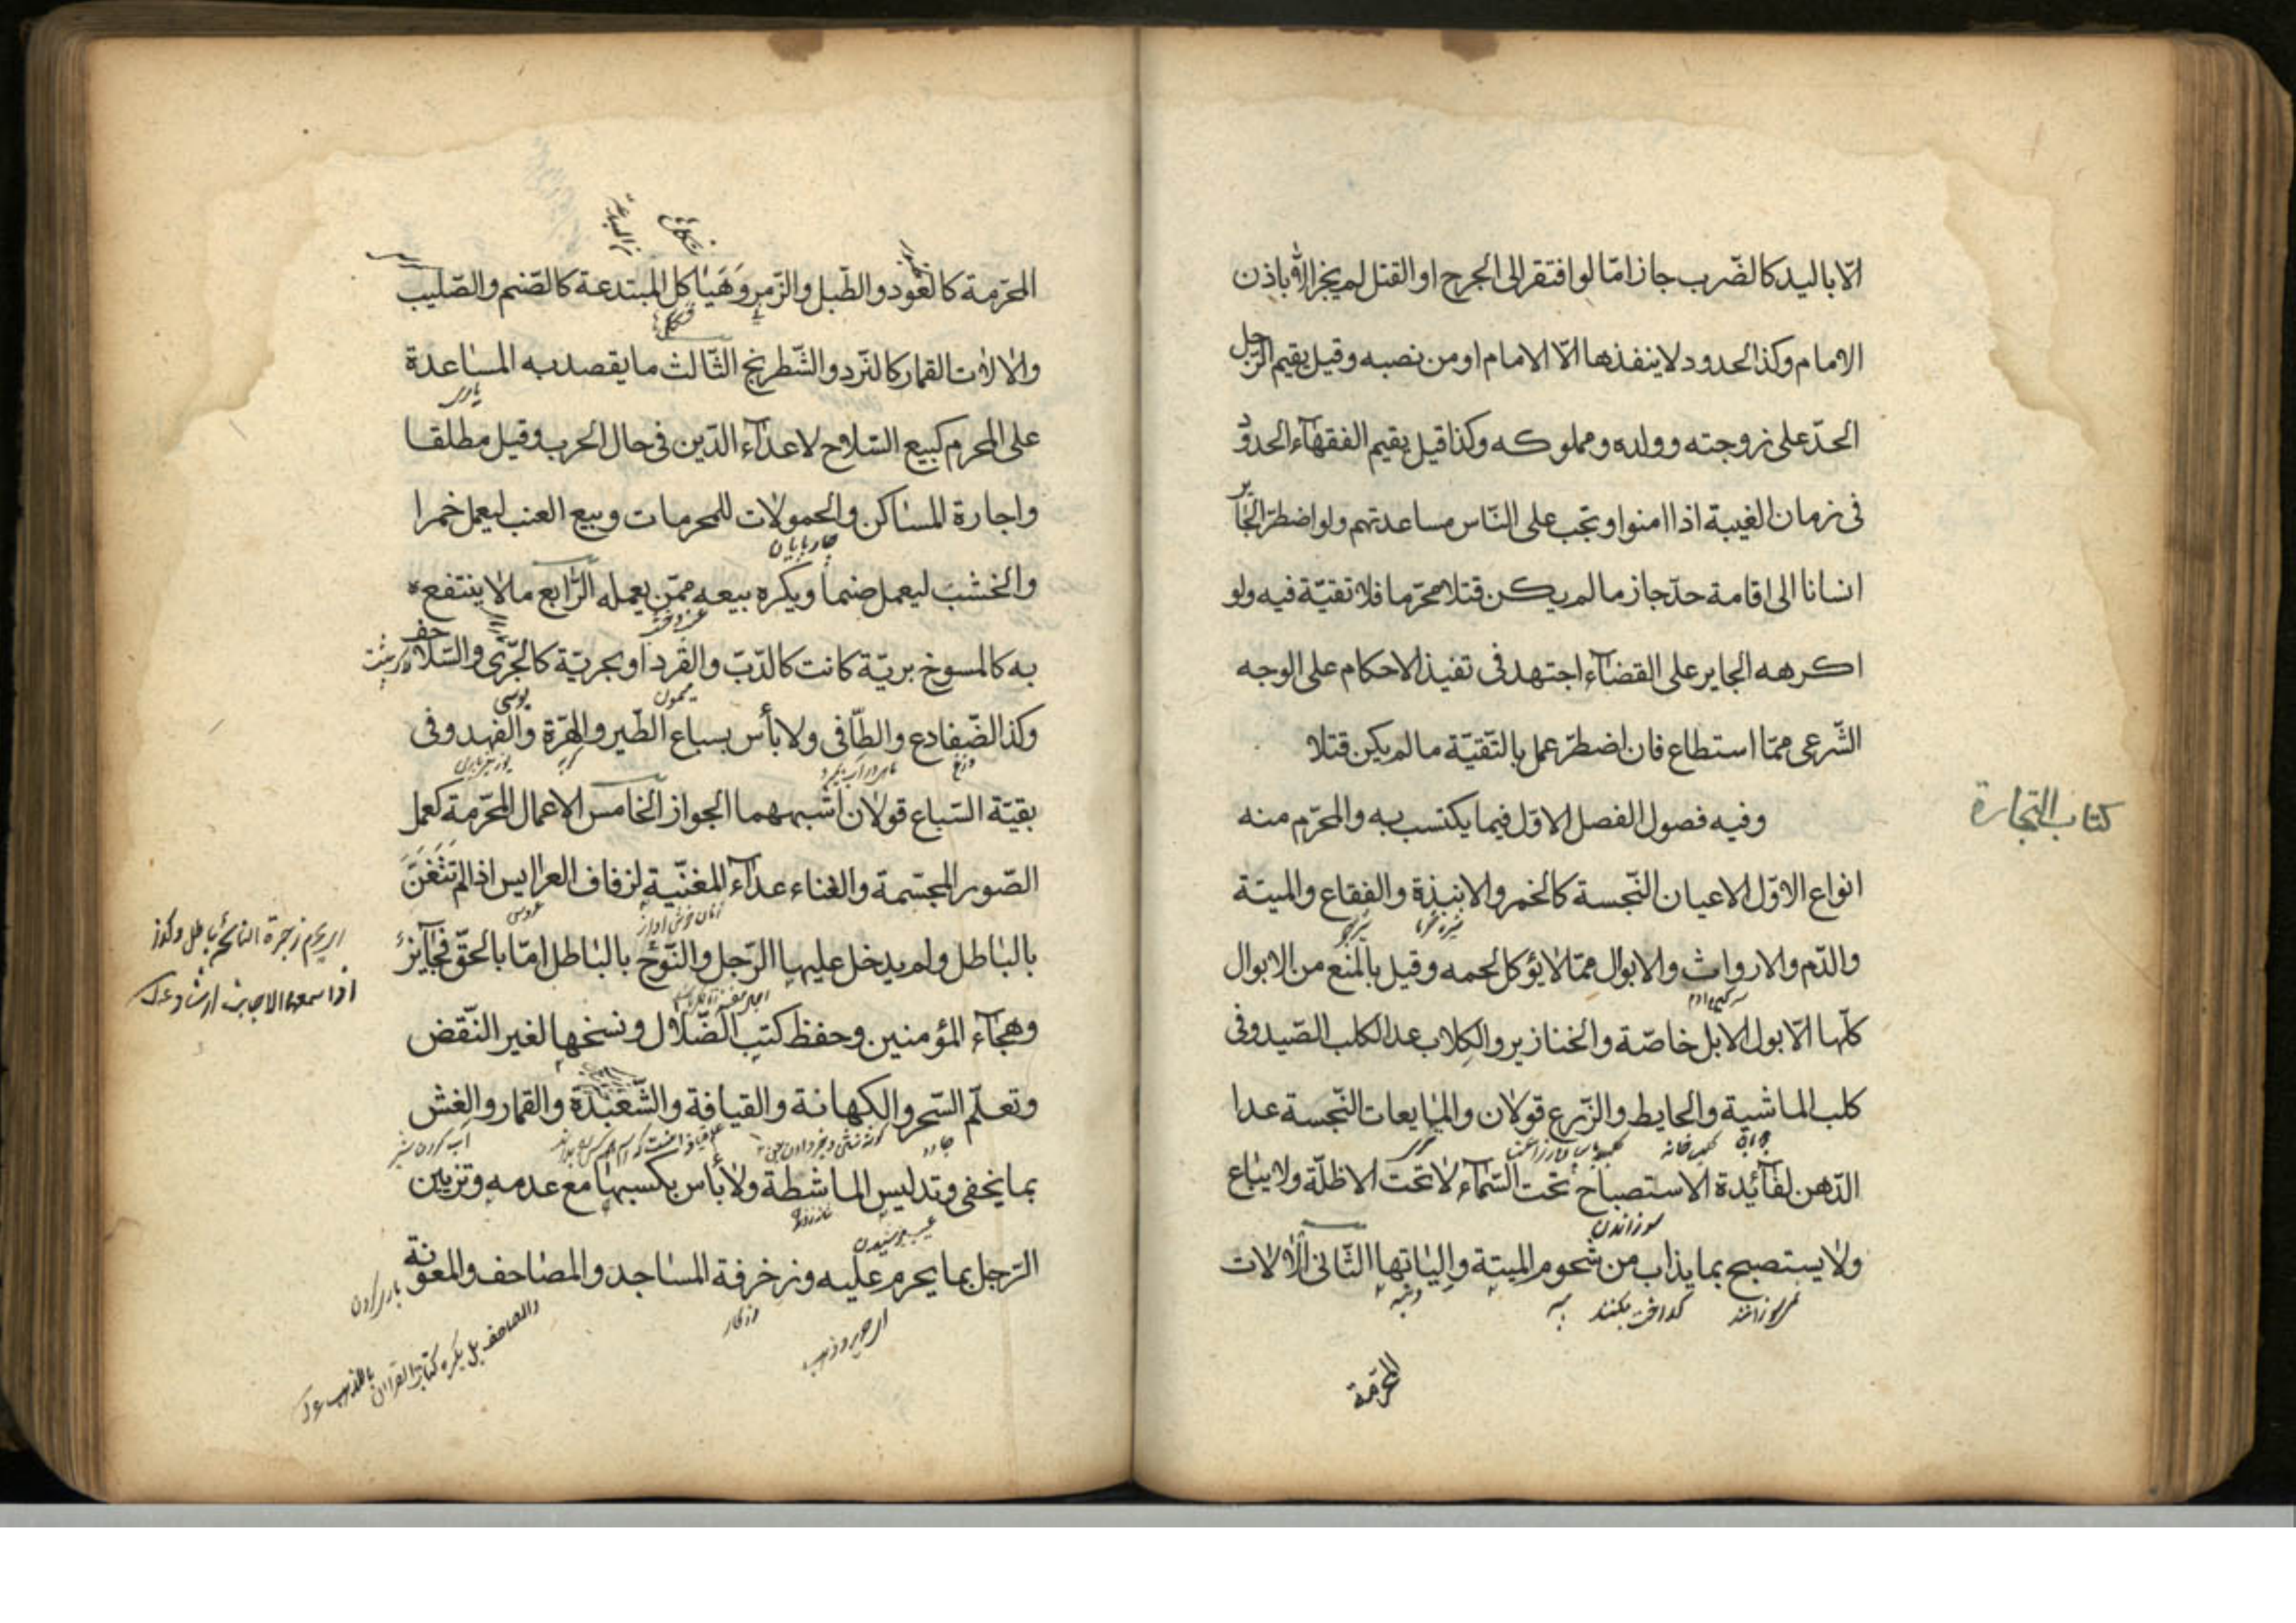 الّا باليد كالضّرب جاز امّا لو افتقر الى الجرح او القتل لم يجز الّا باذن
الامام وكذا لحدود لا ينفذها الّا الامام او من نصبه وقيل يقيم الرّجل
الحدّ على زوجته وولده ومملوكه وكذا قيل يقيم الفقهآء الحدود
فى زمان الغيبة اذا امنوا وتجب على النّاس مساعدتهم ولو اضطرّ الجآير
انسانا الى اقامة حدّ جاز ما لم يكن قتلا محرّما فلا تقيّة فيه ولو
اكرهه الجاير على القضآء اجتهد فى تنفيذ الاحكام على الوجه
الشّرعى ممّا استطاع فان اضطرّ عمل بالتّقيّة ما لم يكن قتلا
كتاب التجارة
وفيه فصول الفصل الاوّل فيما يكتسب به والمحرّم منه
انواع الاوّل الاعيان النّجسة كالخمر والانبذة والفقاع والميتة
والدّم والارواث والابوال ممّا لا يؤكل لحمه وقيل بالمنع من الابوال
كلّها الّا بول الابل خاصّة والخنازير والكلاب عدا لكلب الصّيد وفى
كلب الماشية والحايط والزّرع قولان والمايعات النّجسة عدا
الدّهن لفآئدة الاستصباح تحت السّمآء لا تحت الاظلّة ولا يباع
سوزاندن
ولا يستصبح بما يذاب من شحوم الميتة والياتها الثّانى الآلات
المحرّمة
المحرّمة كالعود والطّبل والزّمر وهياكل المبتدعة كالصّنم والصّليب
والالات القمار كالنّرد والشّطرنج الثّالث ما يقصد به المساعدة
يارى
على المحرم كبيع السّلاح لاعدآء الدّين فى حال الحرب وقيل مطلقا
واجارة المساكن والحمولات للمحرمات وبيع العنب ليعمل خمرا
چارپايان
والخشب ليعمل صنما ويكره بيعه ممّن يعمله الرّابع ما لا ينتفع
به كالمسوخ بريّة كانت كالدّبّ والقرد او بحريّة كالجّرّى والسّلاحف
ميمون
وكذا الضّفادع والطّافى ولا بأس بسباع الطّير والهرّة والفهد وفى
وزغ
گربه
بقيّة السّباع قولان اشبههما الجواز الخامس الاعمال المحرّمة كعمل
الصّور المجسّمة والغناء عدآء المغنّية لزفاف العرايس اذا لم تتغنّ
زنان خوش اواز
عروسى
بالباطل ولم يدخل عليها الرّجل والنّوح بالباطل امّا بالحقّ فجآيز
وهجآء المؤمنين وحفظ كتب الضّلال ونسخها لغير النّقض
وتعلّم السّحر والكهانة والقيافة والشّعبذة والقمار والغش
جادو
بما يخفى وتدليس الماشطة ولا بأس بكسبها مع عدمه وتزيين
عيب پوشيدن
الرّجل بما يحرم عليه وزخرفة المساجد والمصاحف والمعونة
يارى كردن